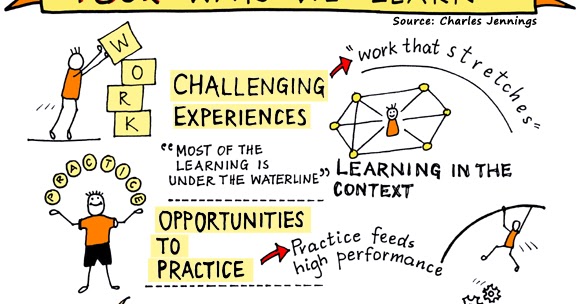 FOUR WAYS WE LEARN
Source: Charles Jennings
W
O
R
K
CHALLENGING
EXPERIENCES
"work that stretches"
"MOST OF THE
LEARNING IS
UNDER THE WATERLINE"
LEARNING IN THE
CONTEXT
PRACTICE
OPPORTUNITIES
TO
PRACTICE
Practice feeds
high performance